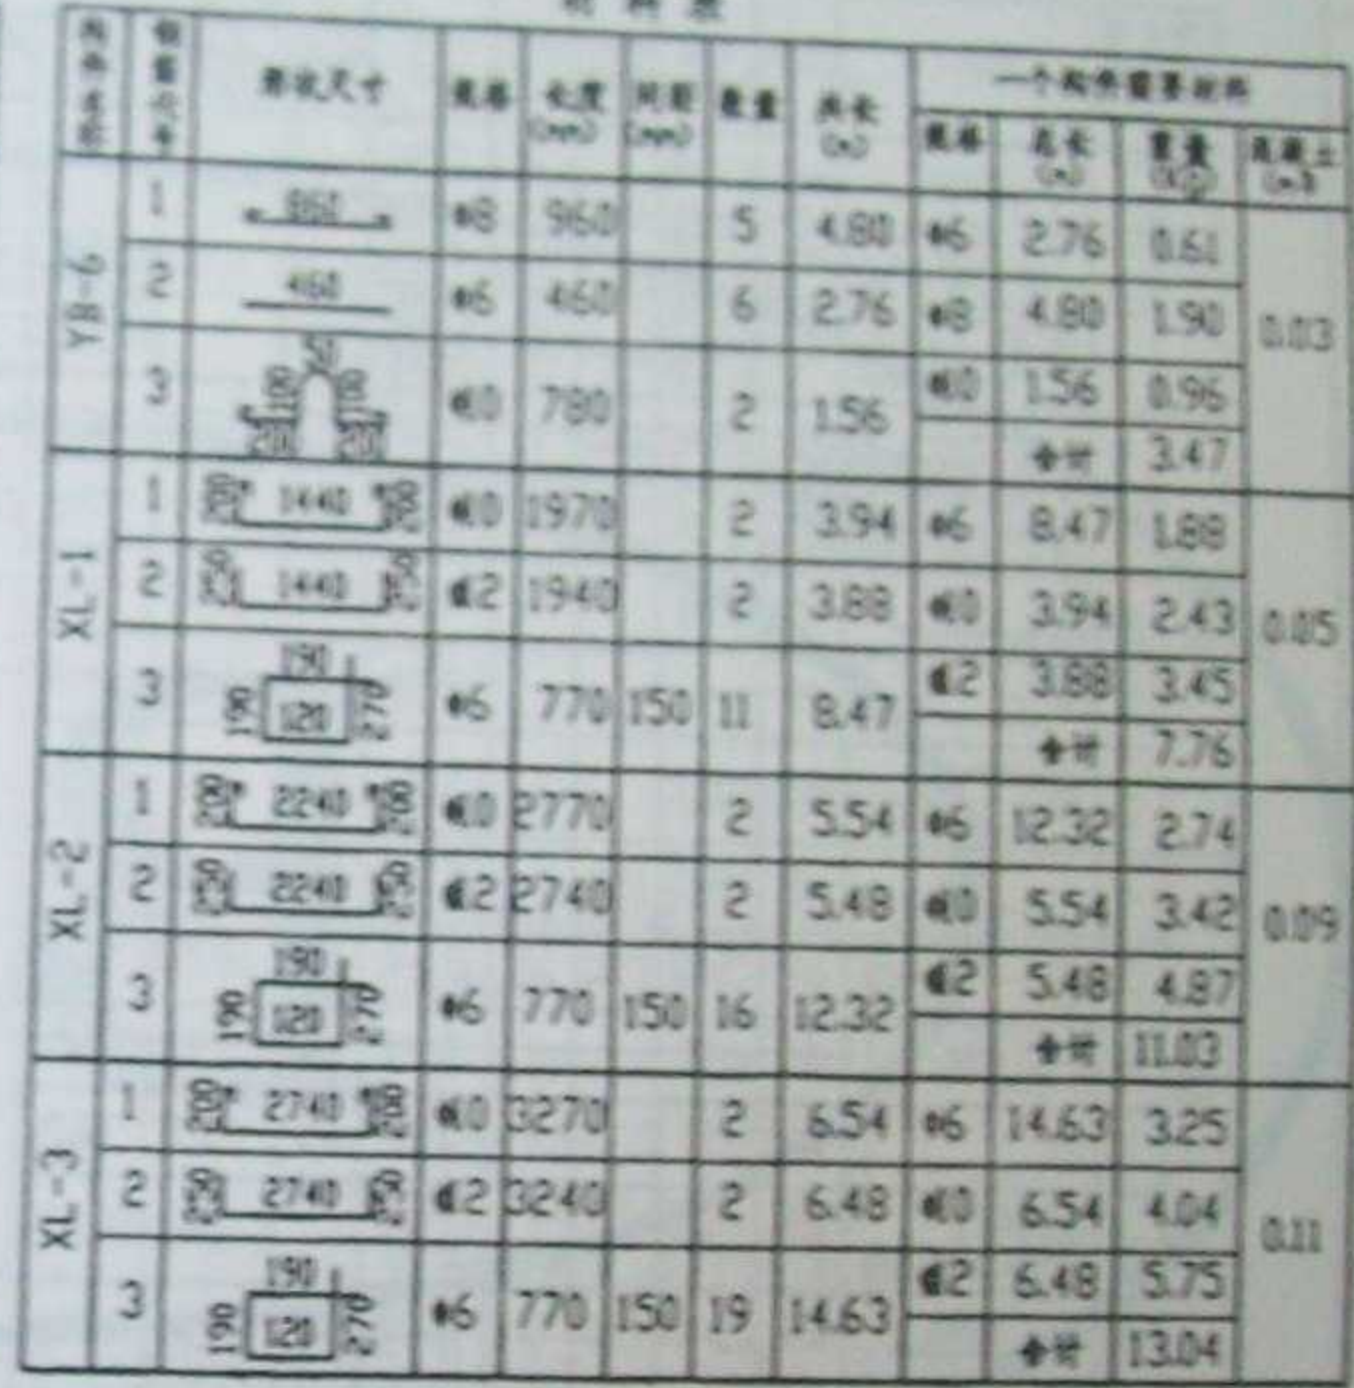 材料表
形状尺寸 规格 长度(mm) 间距(mm) 数量 共长(m) 一个构件需要材料
规格 总长(m) 重量(Kg) 混凝土(m3)
YB-6
1 860 Φ8 960 5 4.80 Φ6 2.76 0.61
2 460 Φ6 460 6 2.76 Φ8 4.80 1.90 0.03
3 100 100 200 200 Φ10 780 2 1.56 Φ10 1.56 0.96
合计 3.47
XL-1
1 200 1440 200 Φ10 1970 2 3.94 Φ6 8.47 1.88
2 250 1440 250 Φ12 1940 2 3.88 Φ10 3.94 2.43 0.05
3 190 190 120 270 Φ6 770 150 11 8.47 Φ12 3.88 3.45
合计 7.76
XL-2
1 200 2240 200 Φ10 2770 2 5.54 Φ6 12.32 2.74
2 250 2240 250 Φ12 2740 2 5.48 Φ10 5.54 3.42 0.09
3 190 190 120 270 Φ6 770 150 16 12.32 Φ12 5.48 4.87
合计 11.03
XL-3
1 200 2740 200 Φ10 3270 2 6.54 Φ6 14.63 3.25
2 250 2740 250 Φ12 3240 2 6.48 Φ10 6.54 4.04 0.11
3 190 190 120 270 Φ6 770 150 19 14.63 Φ12 6.48 5.75
合计 13.04